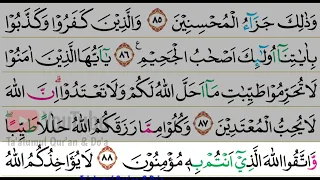 وَذٰلِكَ جَزَاۤءُ الْمُحْسِنِيْنَ ٨٥ وَالَّذِيْنَ كَفَرُوْا وَكَذَّبُوْا
بِاٰيٰتِنَآ اُولٰۤىِٕكَ اَصْحٰبُ الْجَحِيْمِ ٨٦ يٰٓاَيُّهَا الَّذِيْنَ اٰمَنُوْا
لَا تُحَرِّمُوْا طَيِّبٰتِ مَآ اَحَلَّ اللّٰهُ لَكُمْ وَلَا تَعْتَدُوْا ۗاِنَّ اللّٰهَ
لَا يُحِبُّ الْمُعْتَدِيْنَ ٨٧ وَكُلُوْا مِمَّا رَزَقَكُمُ اللّٰهُ حَلٰلًا طَيِّبًا ۖ
وَّاتَّقُوا اللّٰهَ الَّذِيْٓ اَنْتُمْ بِهٖ مُؤْمِنُوْنَ ٨٨ لَا يُؤَاخِذُكُمُ اللّٰهُ